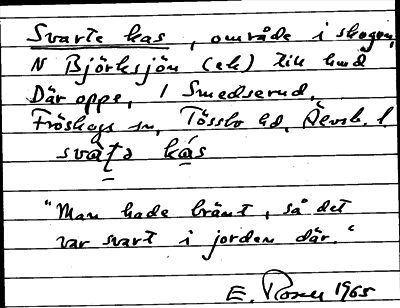 Svarte kas, område i skogen,
N Björksjön (ek) till
Där oppe, i Smedserud.
Fröskogs sn, Tössbo hd, Älvsb. l
svàʈa kás
"Man hade bränt, så det
var svart i jorden där."
E. 1965